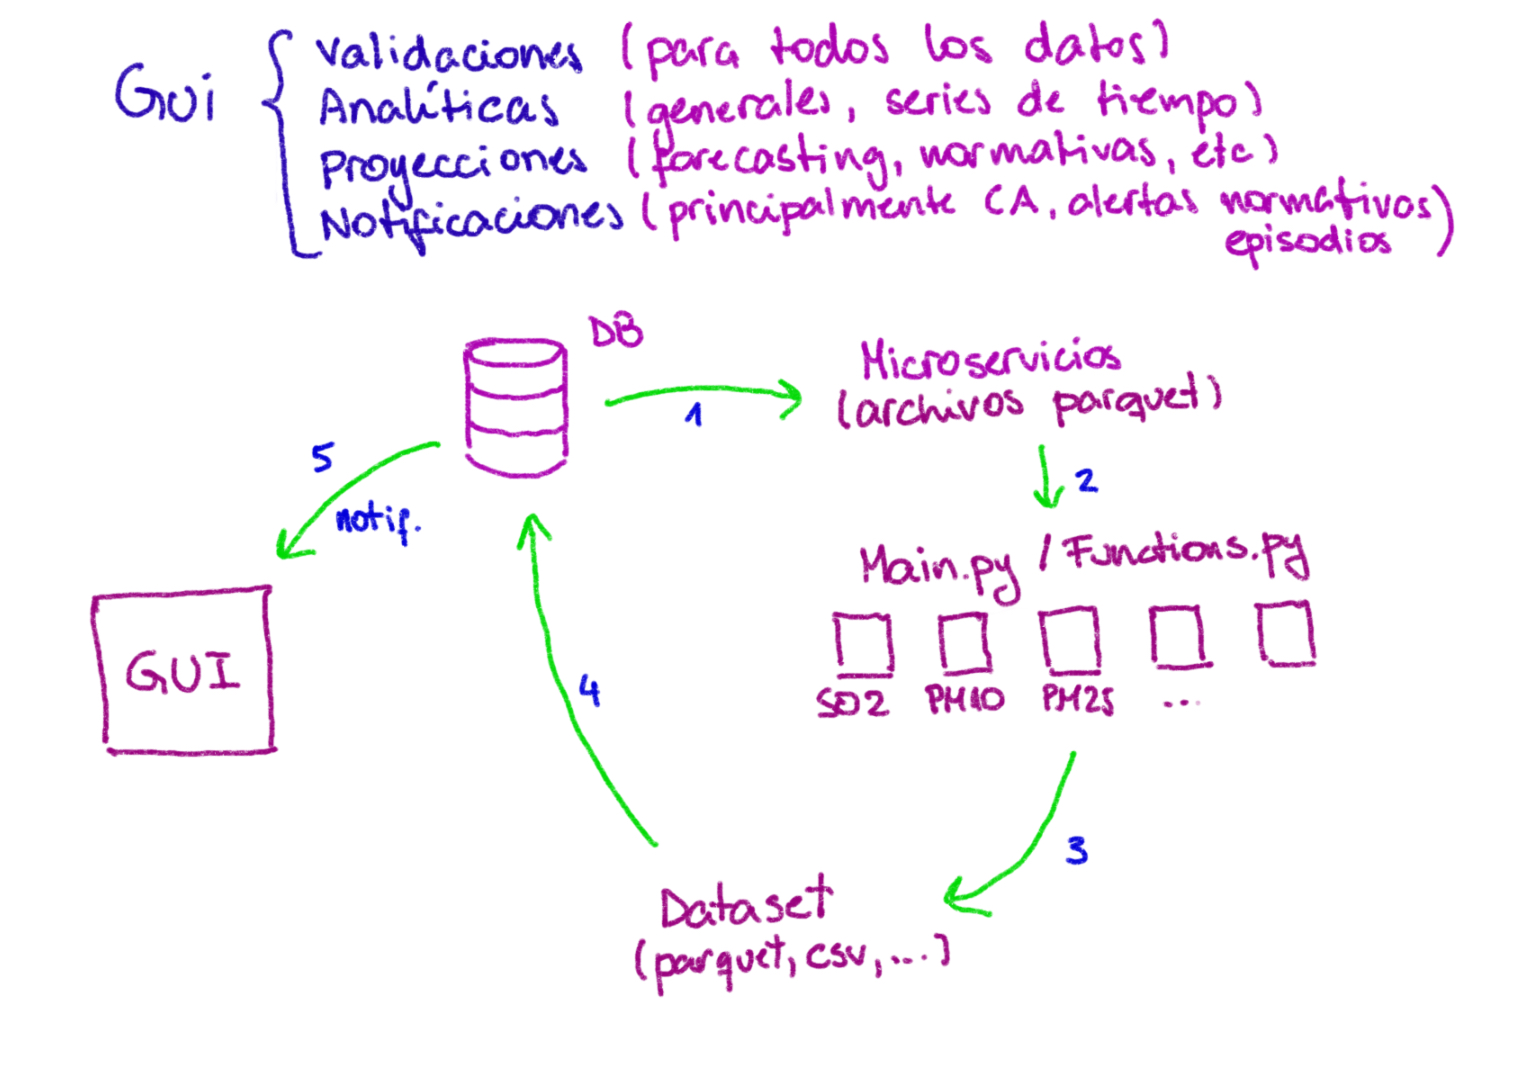 Gui
Validaciones (para todos los datos)
Analíticas (generales, series de tiempo)
Proyecciones (forecasting, normativas, etc)
Notificaciones (principalmente CA, alertas normativos)
episodios
DB
Microservicios
(archivos parquet)
1
5
notif.
2
Main.py / Functions.py
GUI
SO2 PM10 PM25 ...
4
3
Dataset
(parquet, csv, ...)